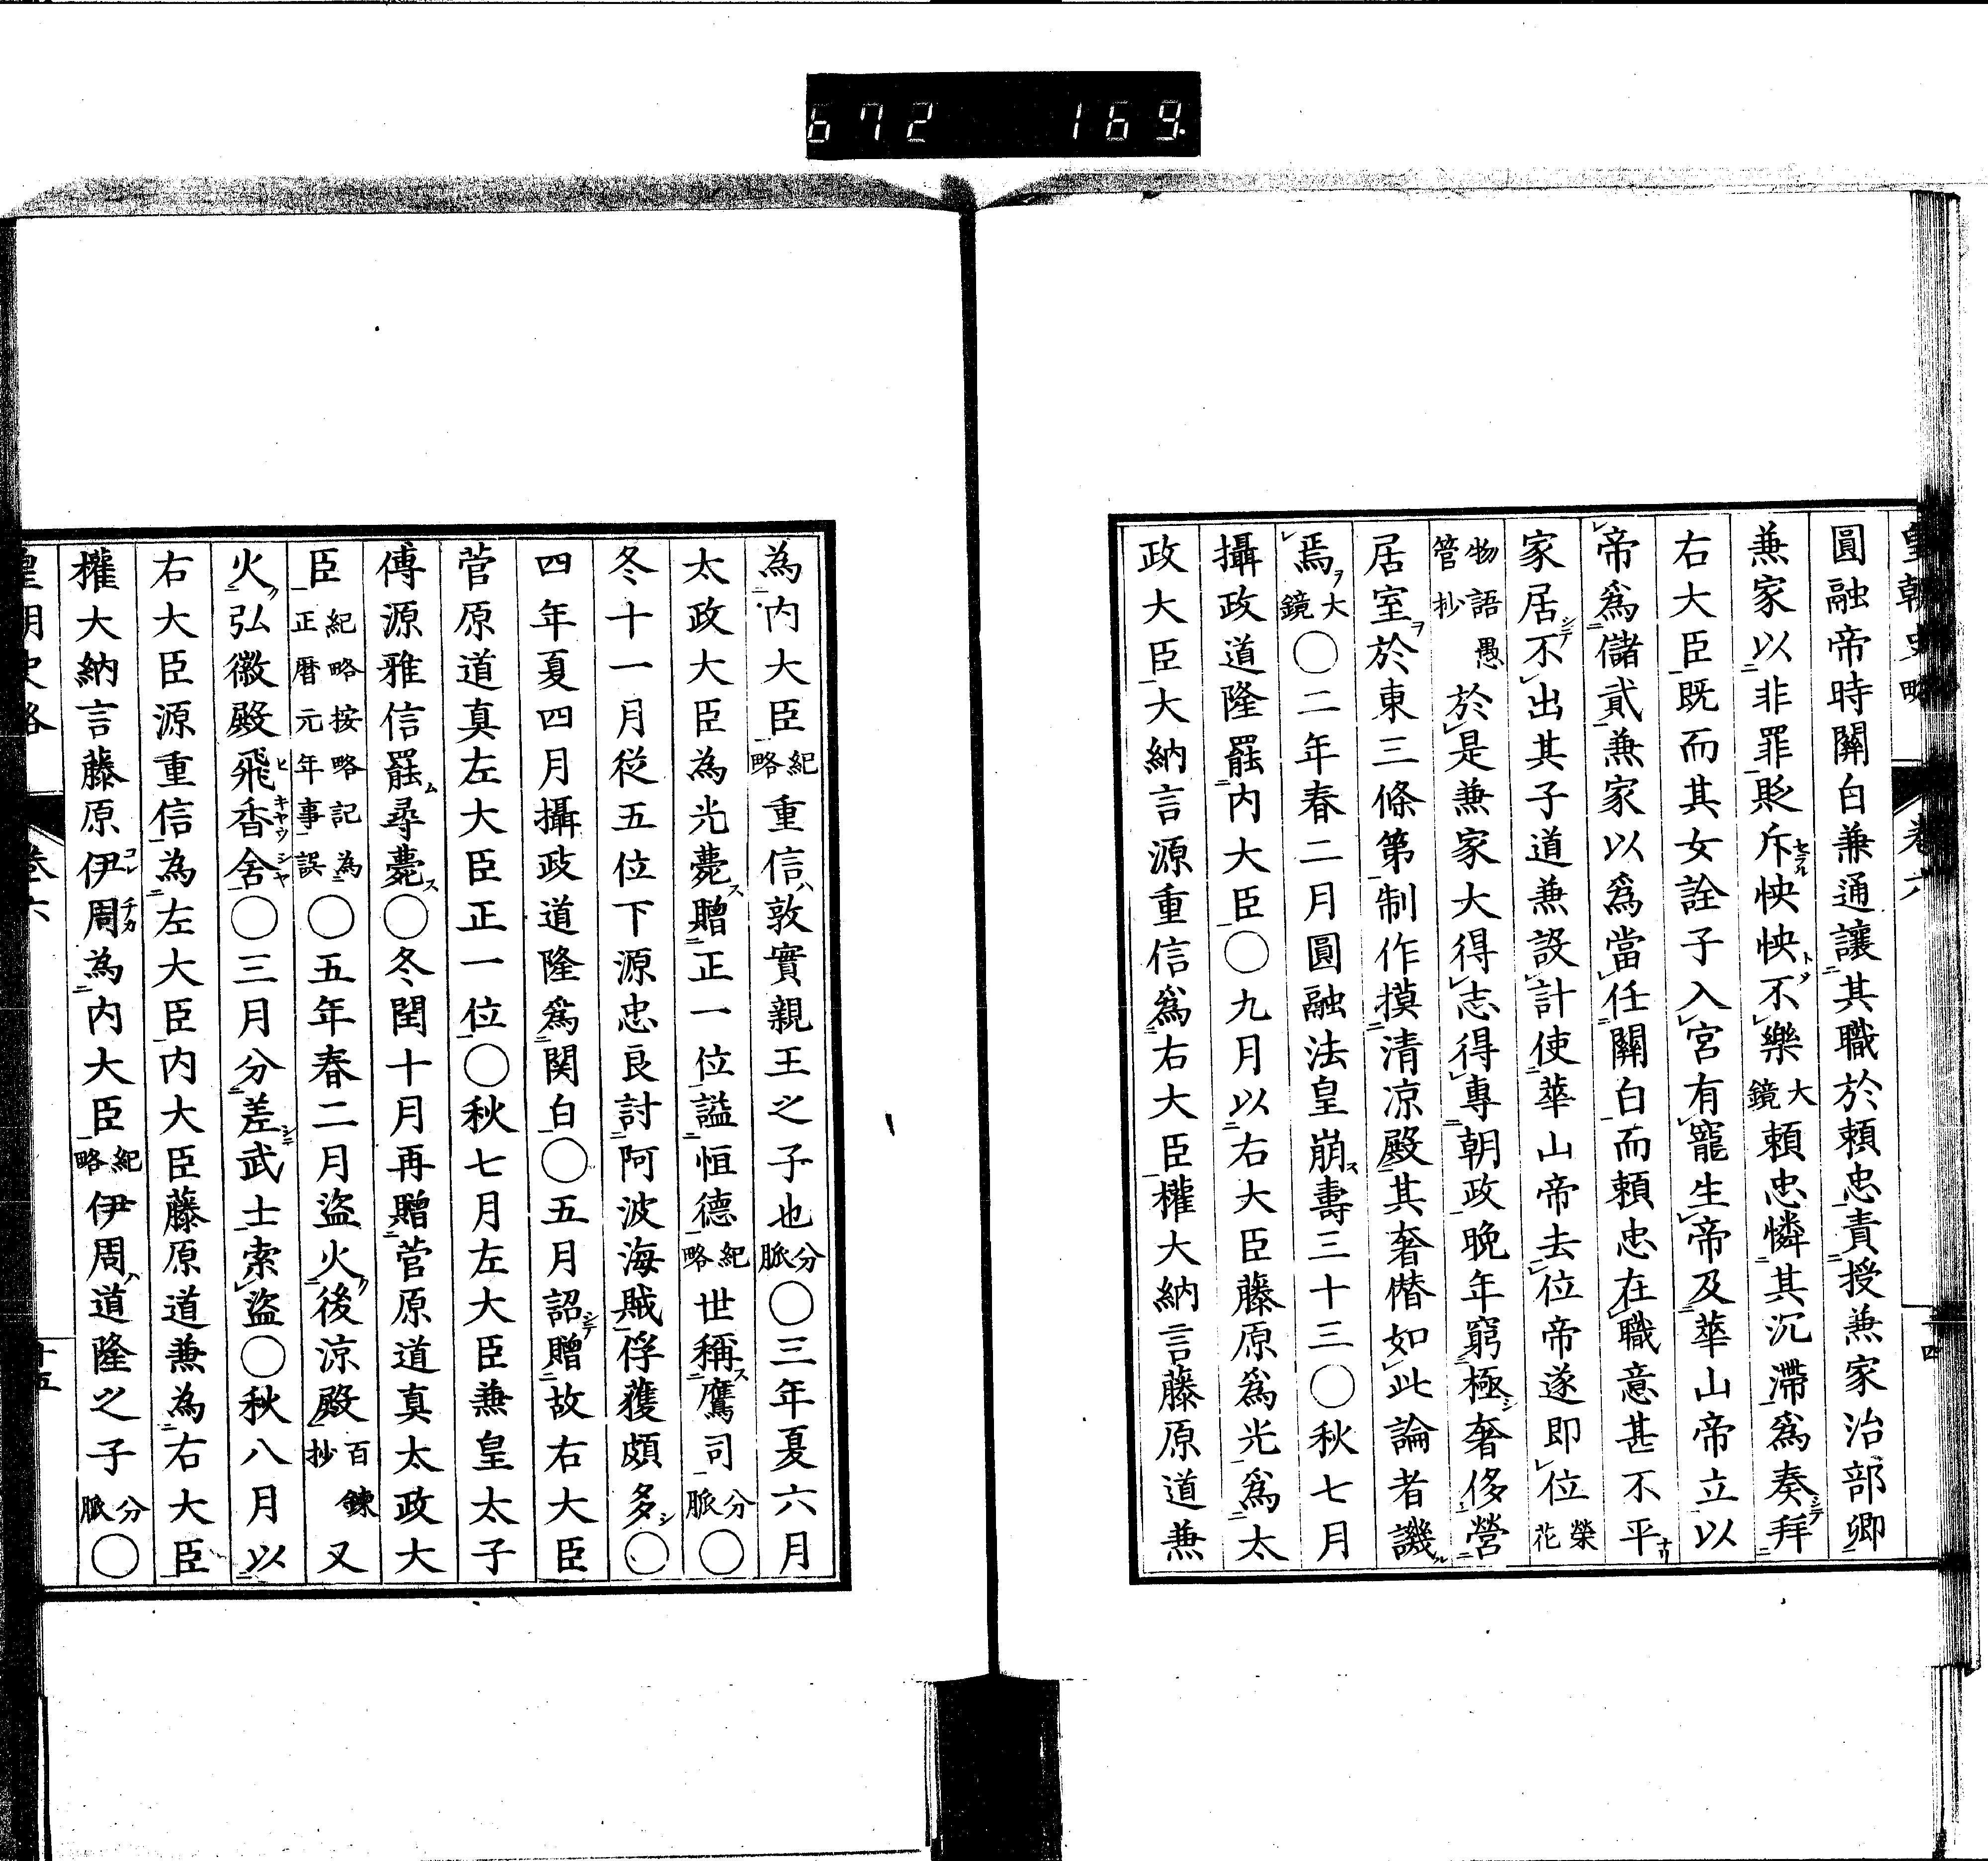 672 169
皇朝史略 卷六 十四
圓融帝時關白兼通讓其職於頼忠責授兼家治部卿
兼家以非罪貶斥怏怏不樂大鏡頼忠憐其沉滯爲奏拜
右大臣既而其女詮子入宮有寵生帝及華山帝立以
帝爲儲貳兼家以爲當任關白而頼忠在職意甚不平
家居不出其子道兼設計使華山帝去位帝遂即位榮花
物語愚管抄於是兼家大得志得專朝政晚年窮極奢侈營
居室於東三條第制作摸清凉殿其奢僭如此論者譏
焉大鏡〇二年春二月圓融法皇崩壽三十三〇秋七月
攝政道隆罷内大臣〇九月以右大臣藤原爲光爲太
政大臣大納言源重信爲右大臣權大納言藤原道兼
為内大臣紀略重信敦實親王之子也分脈〇三年夏六月
太政大臣為光薨贈正一位謚恒德紀略世稱鷹司分脈〇
冬十一月從五位下源忠良討阿波海賊俘獲頗多〇
四年夏四月攝政道隆爲関白〇五月詔贈故右大臣
菅原道真左大臣正一位〇秋七月左大臣兼皇太子
傅源雅信罷尋薨〇冬閏十月再贈菅原道真太政大
臣紀略按略記為正曆元年事誤〇五年春二月盜火後涼殿百鍊抄又
火弘徽殿飛香舍〇三月分差武士索盜〇秋八月以
右大臣源重信為左大臣内大臣藤原道兼為右大臣
權大納言藤原伊周為内大臣紀略伊周道隆之子分脈〇
皇朝史略 卷六 十五